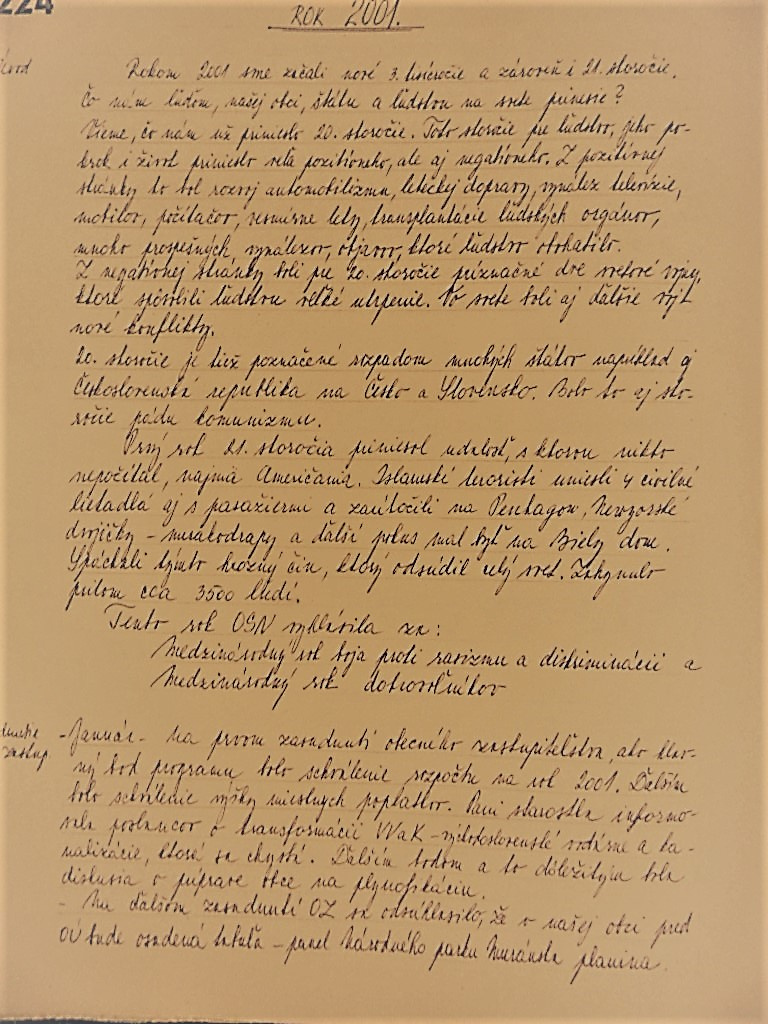 224
ROK 2001.
Úvod
Rokom 2001 sme začali nové 3. tisícročie a zároveň i 21. storočie.
Čo nám ľuďom, našej obci, štátu a ľudstvu na svete prinesie?
Vieme, čo nám už prinieslo 20. storočie. Toto storočie pre ľudstvo, jeho po-
krok i život prinieslo veľa pozitívneho, ale aj negatívneho. Z pozitívnej
stránky to bol rozvoj automobilizmu, leteckej dopravy, vynález televízie,
mobilov, počítačov, vesmírne lety, transplantácie ľudských orgánov,
mnoho prospešných vynálezov, objavov, ktoré ľudstvo obohatilo.
Z negatívnej stránky boli pre 20. storočie príznačné dve svetové vojny,
ktoré spôsobili ľudstvu veľké utrpenie. Vo svete boli aj ďalšie vojt
nové konflikty.
20. storočie je tiež poznačené rozpadom mnohých štátov napríklad aj
Československá republika na Česko a Slovensko. Bolo to aj sto-
ročie pádu komunizmu.
Prvý rok 21. storočia priniesol udalosť, s ktorou nikto
nepočítal, najmä Američania. Islamskí teroristi uniesli 4 civilné
lietadlá aj s pasažiermi a zaútočili na Pentagon, Newyorské
dvojičky - mrakodrapy a ďalší pokus mal byť na Biely dom.
Spáchali týmto hrozný čin, ktorý odsúdil celý svet. Zahynulo
pritom cca 3500 ľudí.
Tento rok OSN vyhlásila za:
Medzinárodný rok boja proti rasizmu a diskriminácii a
Medzinárodný rok dobrovoľníkov
zastup.
- Január - na prvom zasadnutí obecného zastupiteľstva, ako hlav-
ný bod programu bolo schválenie rozpočtu na rok 2001. Ďalším
bolo schválenie výšky miestnych poplatkov. Pani starostka informo-
vala poslancov o transformácii VVaK - východoslovenské vodárne a ka-
nalizácie, ktorá sa chystá. Ďalším bodom a to dôležitým bola
diskusia o príprave obce na plynofikáciu.
- Na ďalšom zasadnutí OZ sa odsúhlasilo, že v našej obci pred
OÚ bude osadená tabuľa - panel Národného parku Muránska planina.